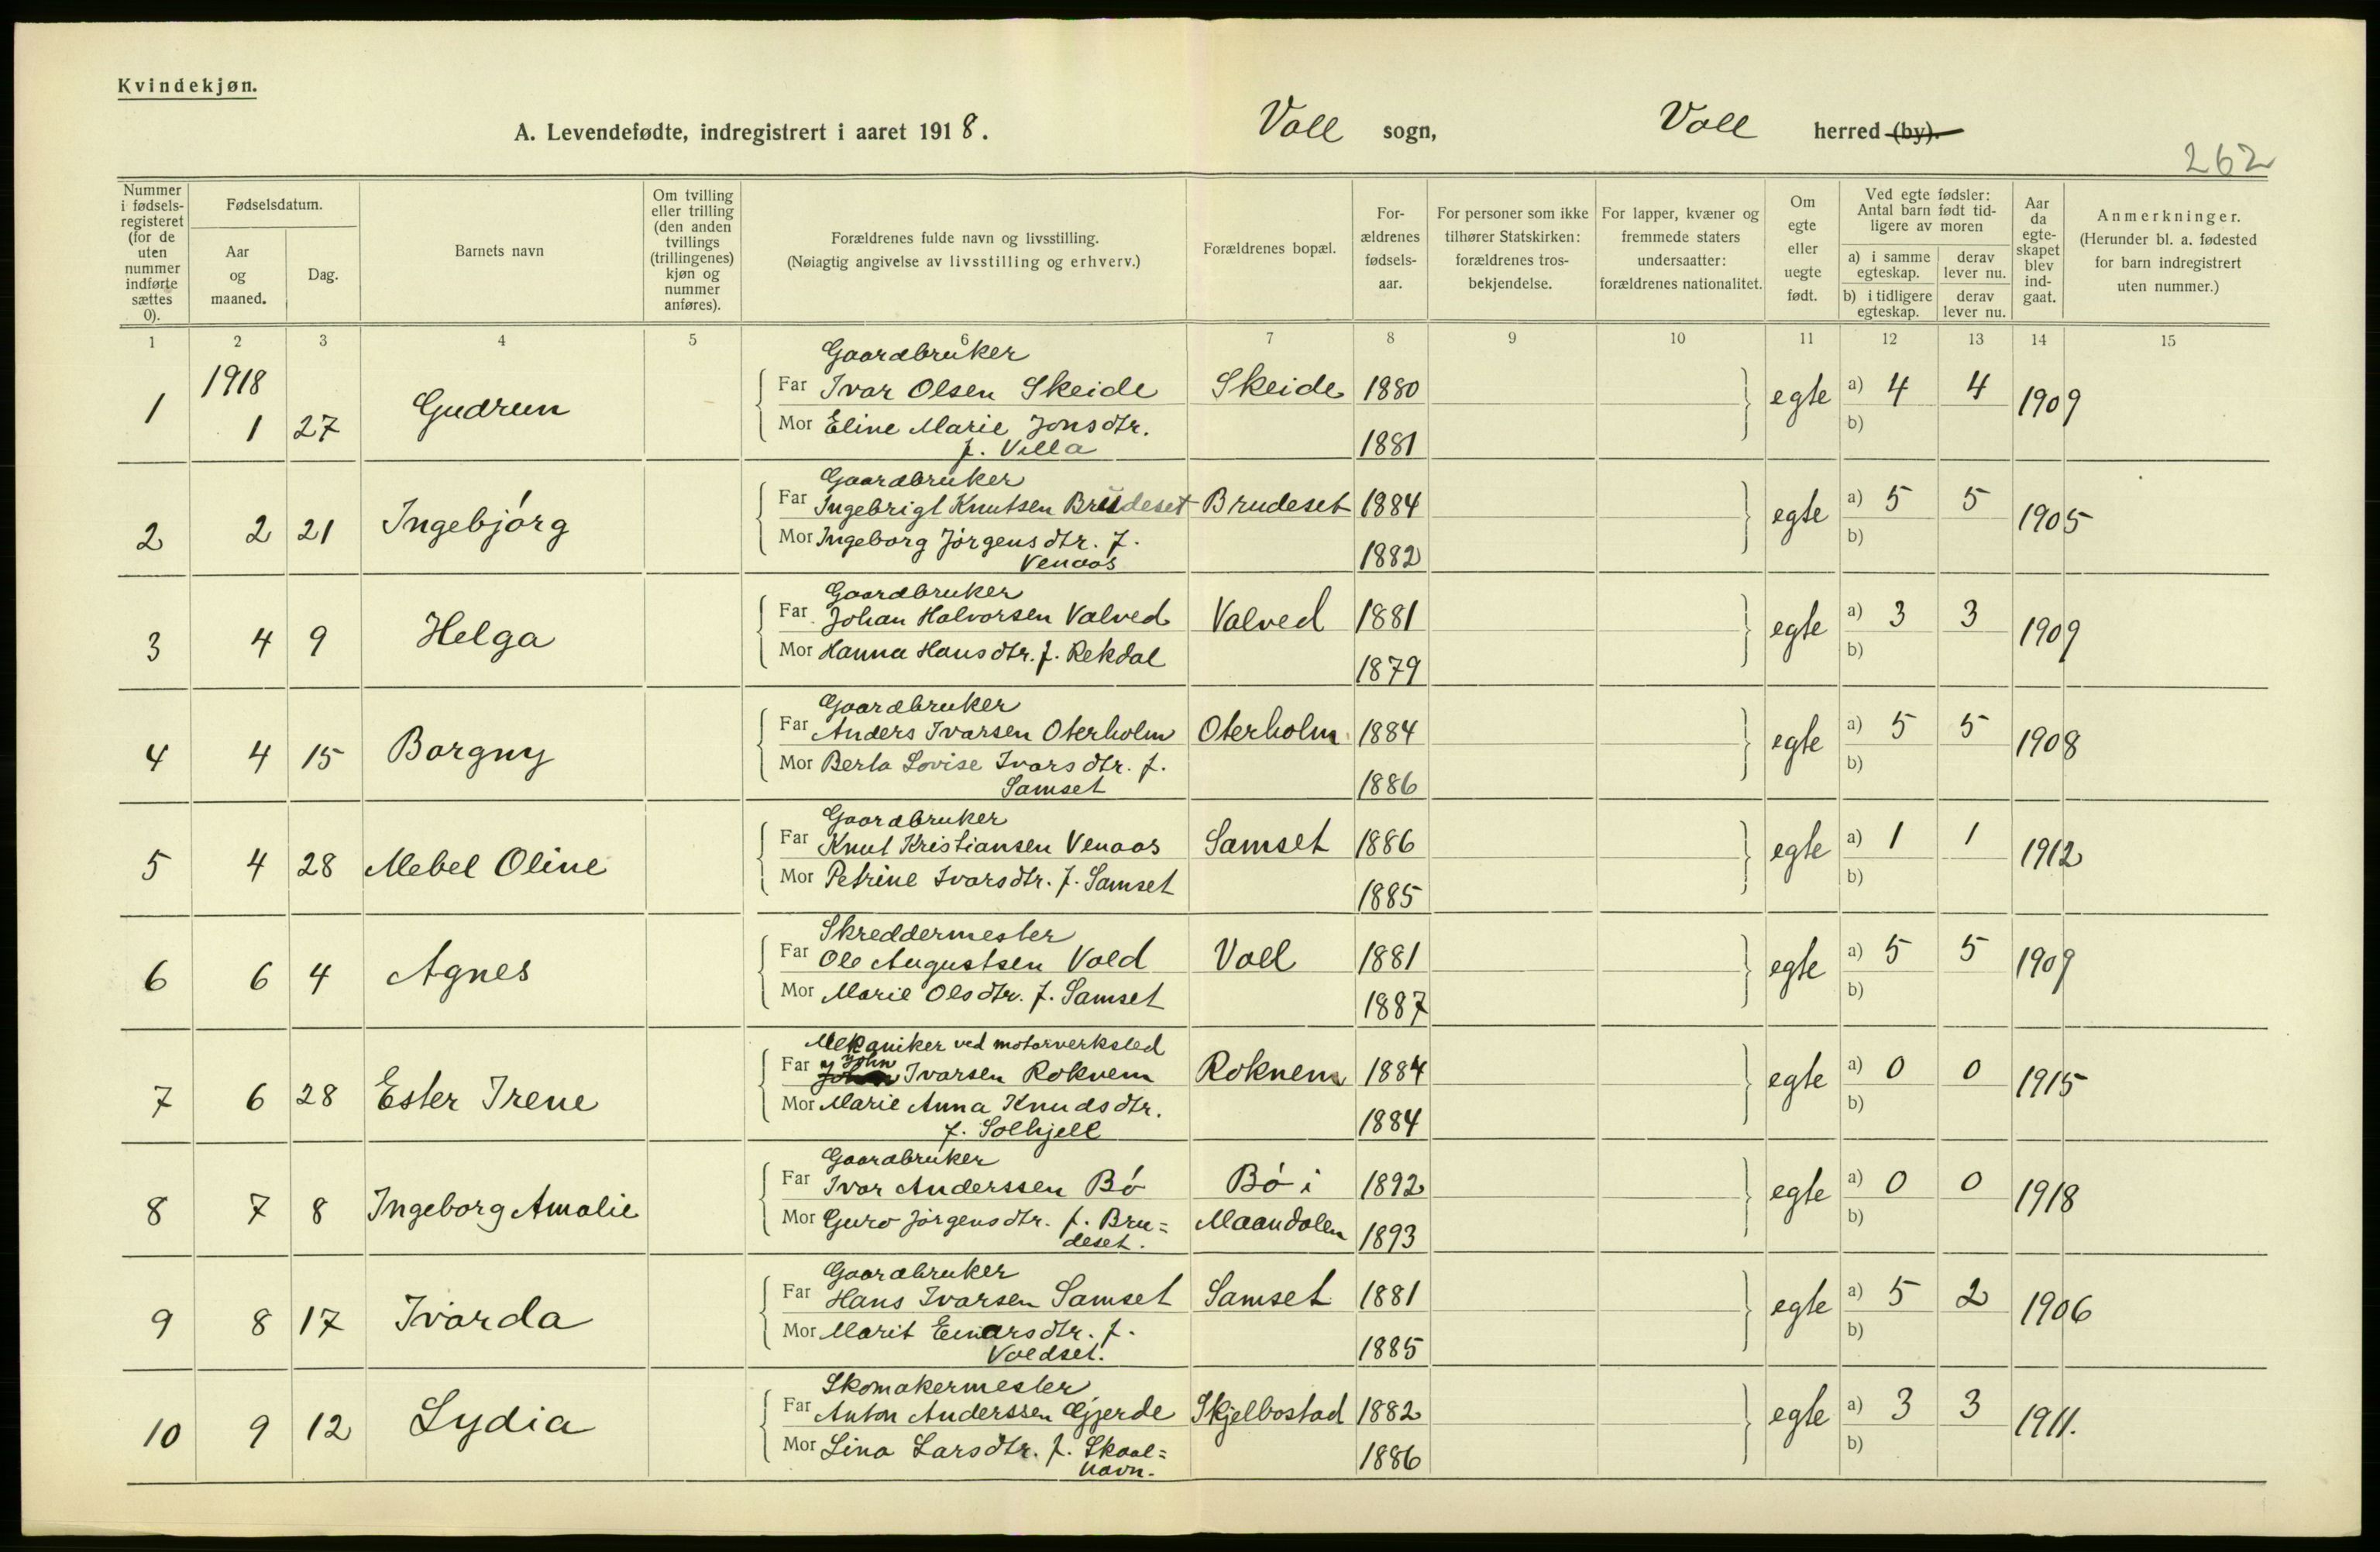 Kvindekjøn.
A. Levendefødte, indregistrert i aaret 1918. Voll sogn, Voll herred (by).
262
Nummer i fødselsregisteret (for de uten nummer indførte sættes 0).
Fødselsdatum.
Aar og maaned.
Dag.
Barnets navn
Om tvilling eller trilling (den anden tvillings (trillingenes) kjøn og nummer anføres).
Forældrenes fulde navn og livsstilling.
(Nøiagtig angivelse av livsstilling og erhverv.)
Forældrenes bopæl.
Forældrenes fødselsaar.
For personer som ikke tilhører Statskirken: forældrenes trosbekjendelse.
For lapper, kvæner og fremmede staters undersaatter: forældrenes nationalitet.
Om egte eller uegte født.
Ved egte fødsler: Antal barn født tidligere av moren
a) i samme egteskap. derav lever nu.
b) i tidligere egteskap. derav lever nu.
Aar da egteskapet blev indgaat.
Anmerkninger.
(Herunder bl. a. fødested for barn indregistrert uten nummer.)
1 2 3 4 5 6 7 8 9 10 11 12 13 14 15
Gaardbruker
1 1918 1 27 Gudrun Far Ivar Olsen Skeide Skeide 1880 egte a) 4 4 1909
Mor Eline Marie Jonsdtr. 1881 b)
f. Villa
Gaardbruker
2 2 21 Ingebjórg Far Ingebrigt Knutsen Brudeset Brudeset 1884 egte a) 5 5 1905
Mor Ingeborg Jörgensdtr. f. 1882 b)
Venaas
Gaardbruker
3 4 9 Helga Far Johan Halvorsen Valved Valved 1881 egte a) 3 3 1909
Mor Hanna Hansdtr. f. Rekdal 1879 b)
Gaardbruker
4 4 15 Borgny Far Anders Ivarsen Oterholm Oterholm 1884 egte a) 5 5 1908
Mor Berta Lovise Ivarsdtr. f. 1886 b)
Samset
Gaardbruker
5 4 28 Mebel Oline Far Knut Kristiansen Venaas Samset 1886 egte a) 1 1 1912
Mor Petrine Ivarsdtr. f. Samset 1885 b)
Skreddermester
6 6 4 Agnes Far Ole Augustsen Vold Voll 1881 egte a) 5 5 1909
Mor Marie Olsdtr. f. Samset 1887 b)
Mekaniker ved motorverksted
7 6 28 Ester Irene Far John Ivarsen Roknem Roknem 1884 egte a) 0 0 1915
Mor Marie Anna Knudsdtr. 1884 b)
f. Solhjell
Gaardbruker
8 7 8 Ingeborg Amalie Far Ivar Anderssen Bó Bó i 1892 egte a) 0 0 1918
Mor Guro Jörgensdtr. f. Bru= Maandalen 1893 b)
deset.
Gaardbruker
9 8 17 Ivarda Far Hans Ivarsen Samset Samset 1881 egte a) 5 2 1906
Mor Marit Einarsdtr. f. 1885 b)
Voldset.
Skomakermester
10 9 12 Lydia Far Anton Anderssen Gjerde Skjelbostad 1882 egte a) 3 3 1911.
Mor Lina Larsdtr. f. Skaal= 1886 b)
havn.